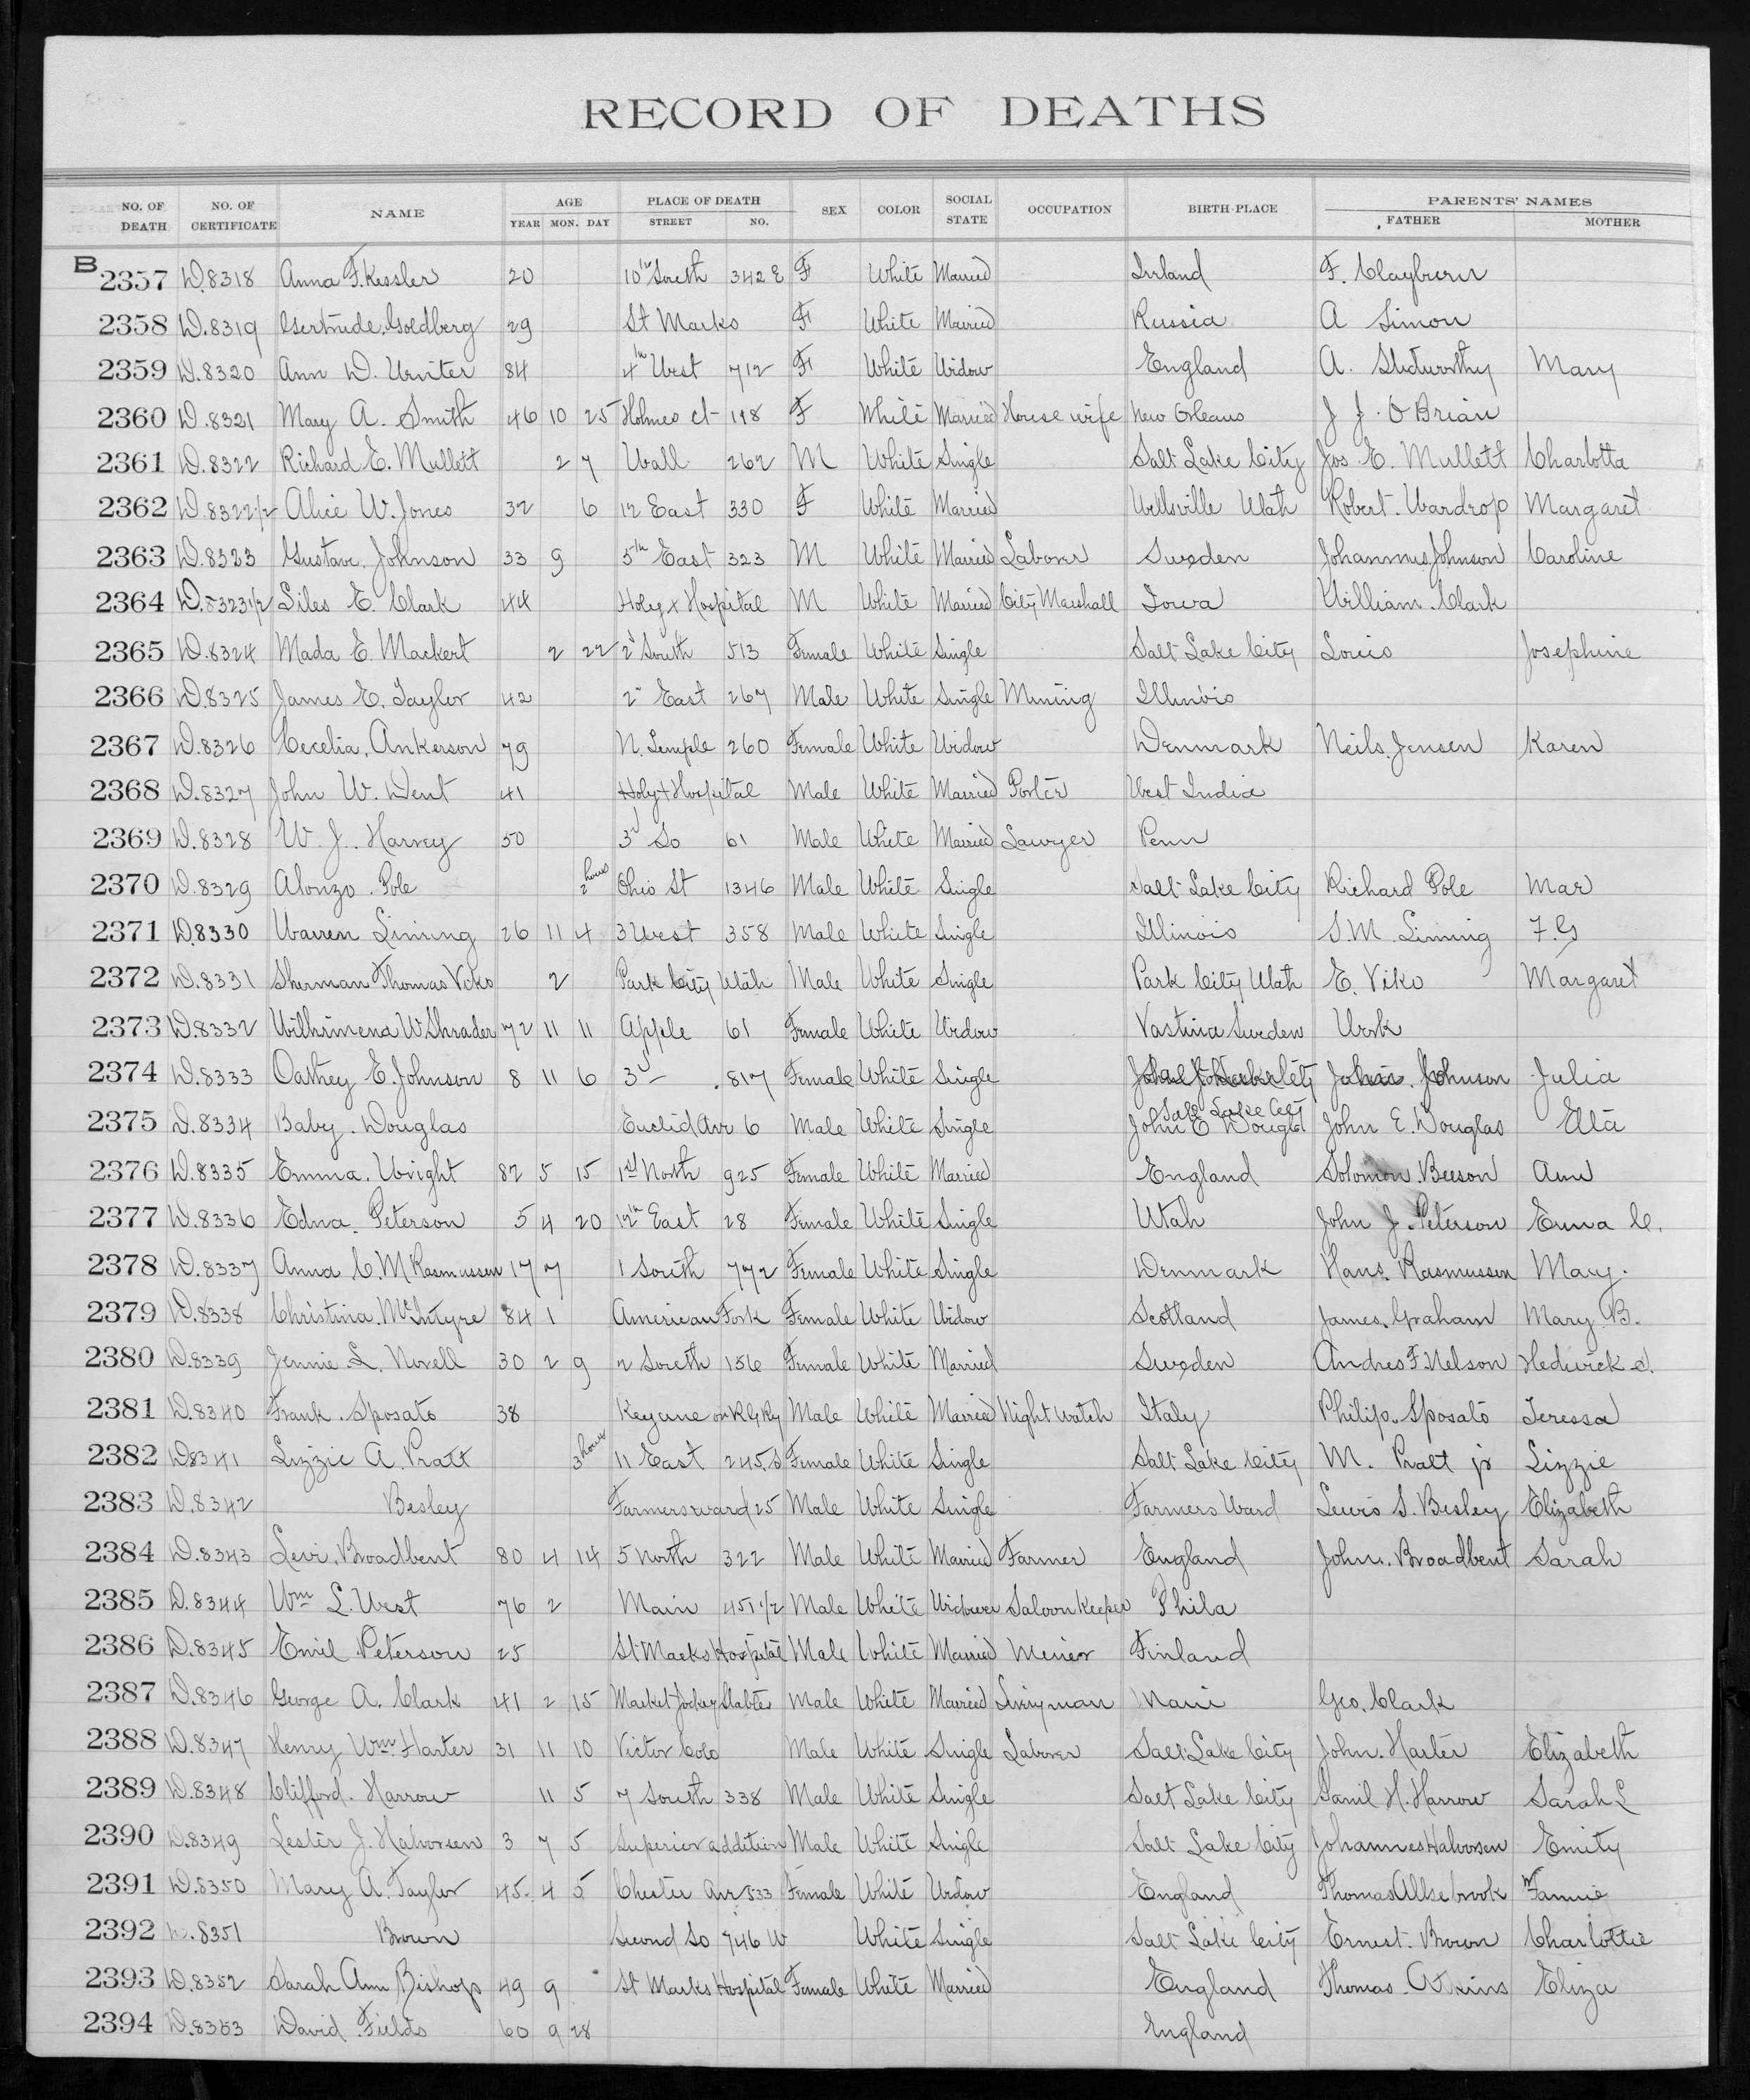 RECORD OF DEATHS
NO. OF DEATH NO. OF CERTIFICATE NAME AGE YEAR MON. DAY PLACE OF DEATH STREET NO. SEX COLOR SOCIAL STATE OCCUPATION BIRTH-PLACE PARENTS' NAMES FATHER MOTHER
B 2357 D.8318 Anna F. Kessler 20 10th South 342 E F White Married Irland F. Clayburn
2358 D.8319 Gertrude Goldberg 29 St Marks F White Married Russia A Simon
2359 D.8320 Ann D. Winter 84 4th West 712 F White Widow England A. Mary
2360 D.8321 Mary A. Smith 46 10 25 Holmes ct 118 F White Married House wife New Orleans J J. O Brian
2361 D.8322 Richard E. Mullett 2 7 Wall 262 M White Single Salt Lake City Jos E. Mullett Charlotta
2362 D.8322 1/2 Alice W. Jones 32 6 12 East 330 F White Married Wellsville Utah Robert Wardrop Margaret
2363 D.8323 Gustave Johnson 33 9 5th East 323 M White Married Laborer Sweden Johannus Johnson Caroline
2364 D.8323 1/2 Siles E. Clark 44 Holy + Hospital M White Married City Marshall Iowa William Clark
2365 D.8324 Mada E. Mackert 2 22 2d South 513 Female White Single Salt Lake City Louis Josephine
2366 D.8325 James E. Taylor 42 2d East 267 Male White Single Mining Illinois
2367 D.8326 Cecelia Ankerson 79 N. Temple 260 Female White Widow Denmark Neils Jensen Karen
2368 D.8327 John W. Dent 41 Holy + Hospital Male White Married Porter West India
2369 D.8328 W. J. Harvey 50 3d So 61 Male White Married Lawyer Penn
2370 D.8329 Alonzo Pole 2 hours Ohio St 1346 Male White Single Salt Lake City Richard Pole Mar
2371 D.8330 Warren Lining 26 11 4 3 West 358 Male White Single Illinois S.M. Linning F.G
2372 D.8331 Sherman Thomas Viko 2 Park City Utah Male White Single Park City Utah E. Viko Margaret
2373 D.8332 Wilhrimena W Shrader 72 11 11 Apple 61 Female White Widow Vastina Sweden Work
2374 D.8333 Oathey E. Johnson 8 11 6 3d 817 Female White Single Johnson Julia
Salt Lake City
2375 D.8334 Baby Douglas Euclid Ave 6 Male White Single John E Douglas John E. Douglas Ella
2376 D.8335 Emma Wright 82 5 15 1st North 925 Female White Married England Solomon Beeson Ann
2377 D.8336 Edna Peterson 5 4 20 12th East 28 Female White Single Utah John J. Peterson Emma C.
2378 D.8337 Anna C. M Rasmussen 17 7 1 South 772 Female White Single Denmark Hans Rasmussen Mary
2379 D.8338 Christina McIntyre 84 1 American Fork Female White Widow Scotland James Graham Mary B.
2380 D.8339 Jennie L. Norell 30 2 9 2 South 156 Female White Married Sweden Andres F. Nelson Hedwick
2381 D.8340 Frank Sposato 38 on R G Ry Male White Married Night watch Italy Philip Sposato Teressa
2382 D.8341 Lizzie A. Pratt 3 hours 11 East 245.S Female White Single Salt Lake City M. Pratt jr Lizzie
2383 D.8342 Besley Farmers ward 25 Male White Single Farmers Ward Lewis S. Besley Elizabeth
2384 D.8343 Levi Broadbent 80 4 14 5 North 322 Male White Married Farmer England John Broadbent Sarah
2385 D.8344 Wm L. West 76 2 Main 451 1/2 Male White Widower Saloon Keeper Phila
2386 D.8345 Emil Peterson 25 St Marks Hospital Male White Married Miner Finland
2387 D.8346 George A. Clark 41 2 15 Market Jockey Stables Male White Married Liveryman Main Geo. Clark
2388 D.8347 Henry Wm Harter 31 11 10 Victor Colo Male White Single Laborer Salt Lake City John Harter Elizabeth
2389 D.8348 Clifford Harrow 11 5 7 South 338 Male White Single Salt Lake City H. Harrow Sarah L
2390 D.8349 Lester J. Halvorsen 3 7 5 Superior addition Male White Single Salt Lake City Johannes Halvorsen Emity
2391 D.8350 Mary A. Taylor 45 4 5 Chester Ave 533 Female White Widow England Thomas Allsebrook Fannie
2392 D.8351 Brown Second So 746 W White Single Salt Lake City Ernest Brown Charlottie
2393 D.8352 Sarah Ann Bishop 49 9 St Marks Hospital Female White Married England Thomas Atkins Eliza
2394 D.8353 David Fields 60 9 28 England